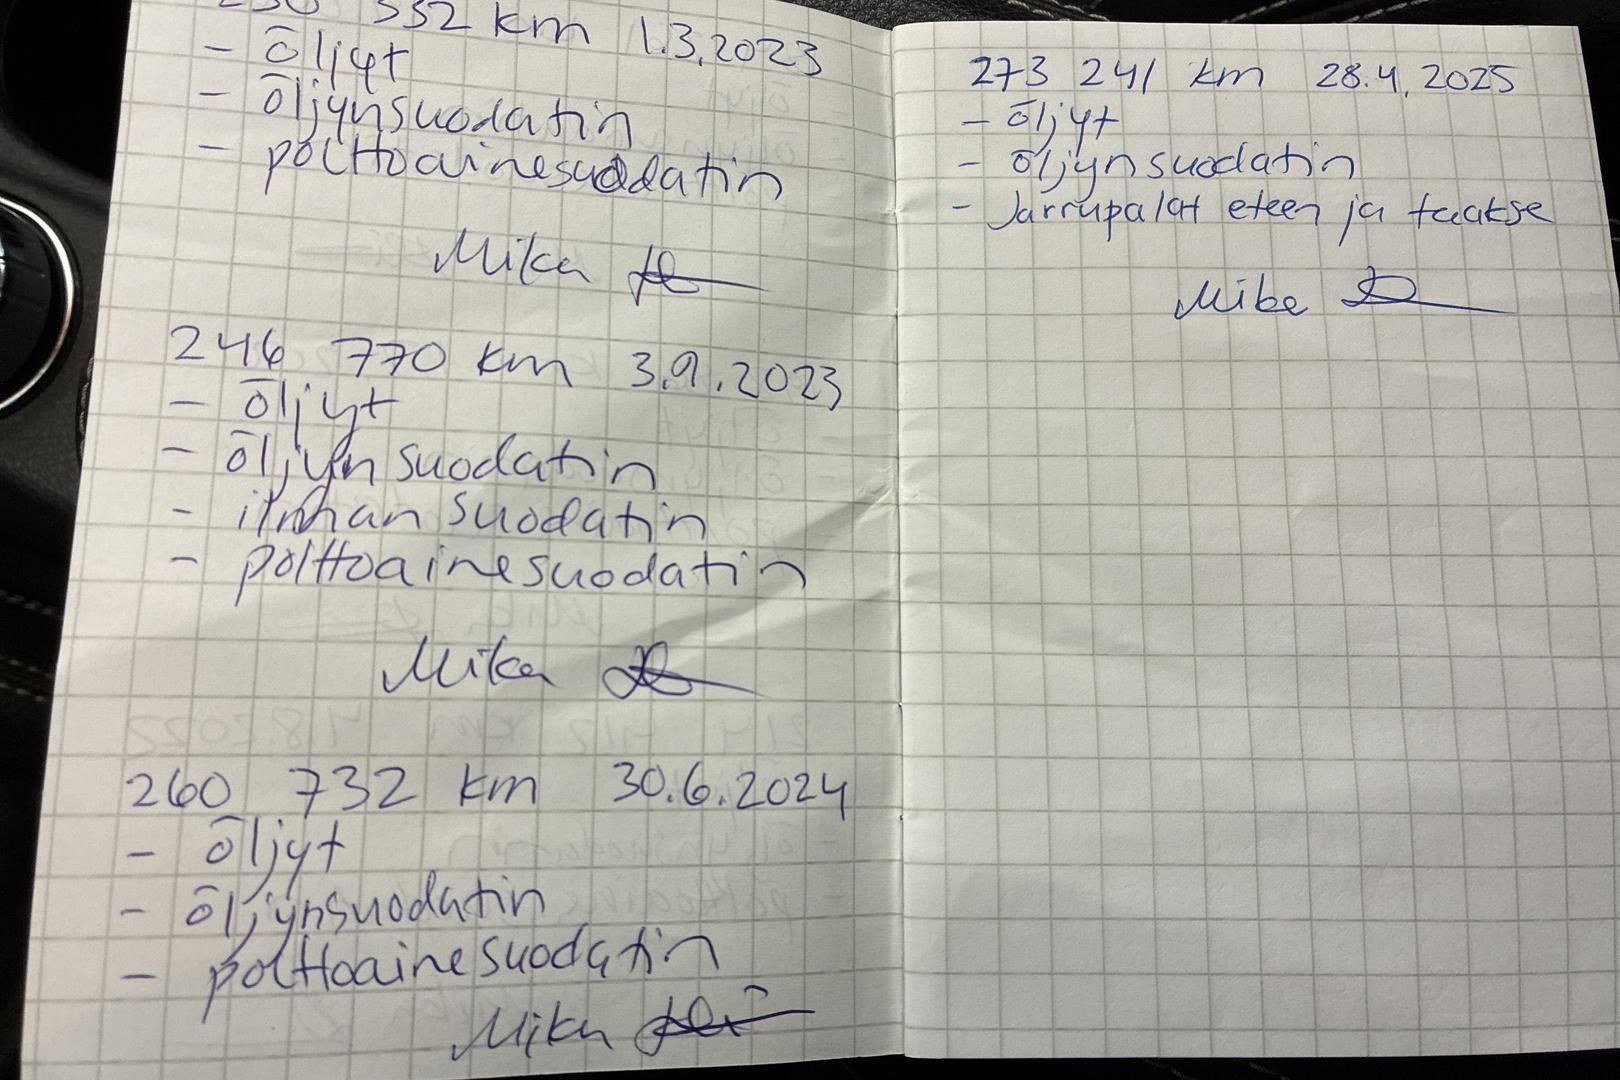 332 km 1.3.2023
- öljyt
- öljynsuodatin
- polttoainesuodatin
Mika
246 770 km 3.9.2023
- öljyt
- öljyn suodatin
- ilman suodatin
- polttoainesuodatin
Mika
260 732 km 30.6.2024
- öljyt
- öljynsuodatin
- polttoainesuodatin
Mika
273 241 km 28.4.2025
- öljyt
- öljynsuodatin
- Jarrupalat eteen ja taakse
Mika